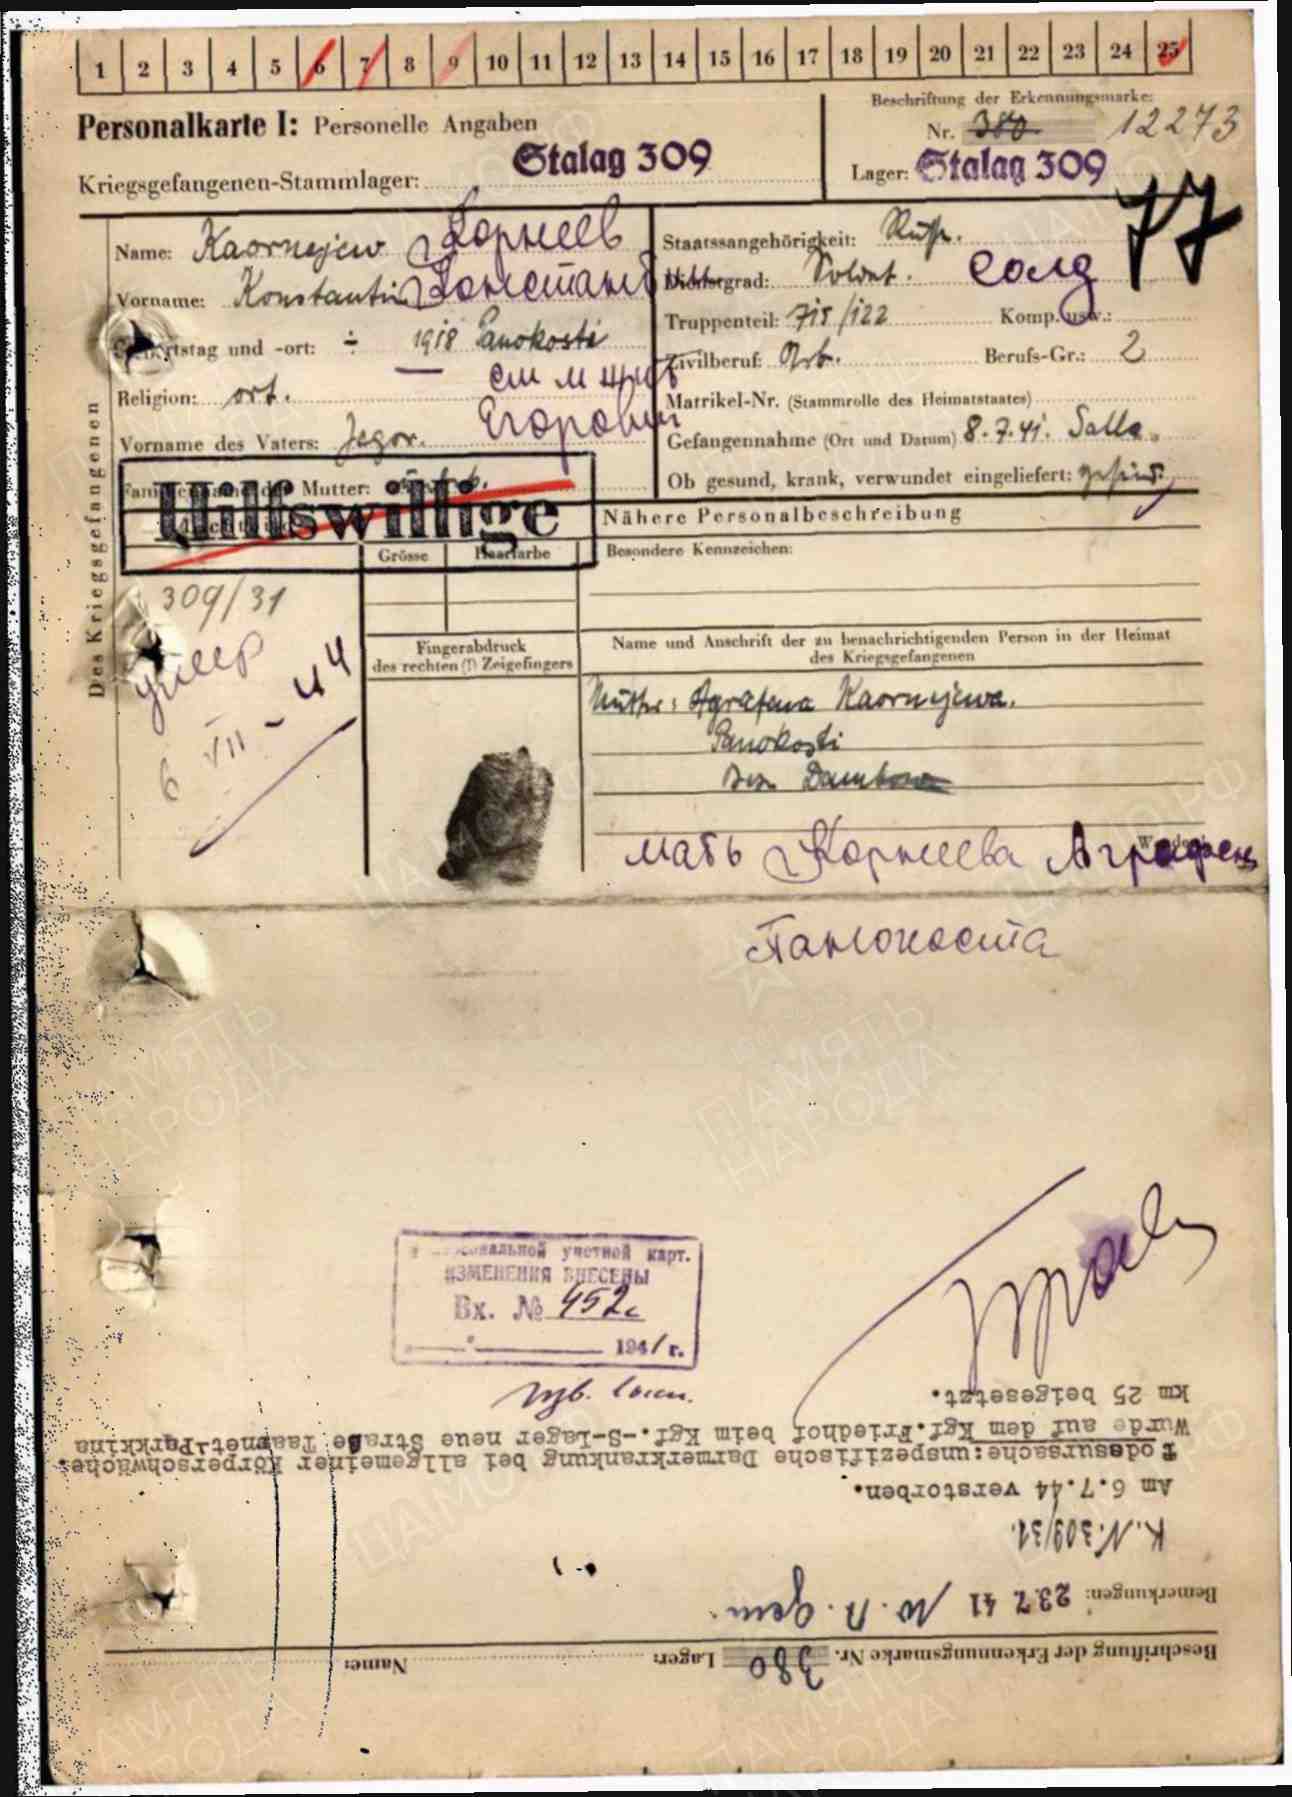 1 2 3 4 5 6 7 8 9 10 11 12 13 14 15 16 17 18 19 20 21 22 23 24 25
Personalkarte I: Personelle Angaben
Kriegsgefangenen-Stammlager: Stalag 309
Beschriftung der Erkennungsmarke:
Nr. 380 12273
Lager: Stalag 309
77
Des Kriegsgefangenen
Name: Kaornejew Корнеев
Vorname: Konstantin Константи
Geburtstag und -ort: ÷ 1918 Panokosti
Religion: ort.
Vorname des Vaters: Jegor. Егорович
Mutter:
Hilfswillige
Staatssangehörigkeit: Russ.
Dienstgrad: Soldat. солд
Truppenteil: 715/122 Komp. usw.:
Zivilberuf: Arb. Berufs-Gr.: 2
Matrikel-Nr. (Stammrolle des Heimatstaates)
Gefangennahme (Ort und Datum) 8.7.41. Salla.
Ob gesund, krank, verwundet eingeliefert: gesund.
Nähere Personalbeschreibung
Grösse Haarfarbe Besondere Kennzeichen:
309/31
умер
6 VII - 44
Fingerabdruck
des rechten (!) Zeigefingers
Name und Anschrift der zu benachrichtigenden Person in der Heimat
des Kriegsgefangenen
Mutter: Agrafena Kaornejewa.
Panokosti
мать Корнеева Аграфена
Панокоста
персональной учетной карт.
ИЗМЕНЕНИЯ ВНЕСЕНЫ
Вх. № 452с
194 г.
Beschriftung der Erkennungsmarke Nr. 380 Lager: Name:
Bemerkungen: 23.7.41
K.N.309/31.
Am 6.7.44 verstorben.
Todesursache:unspezifische Darmerkrankung bei allgemeiner Körperschwäche.
Wurde auf dem Kgf.Friedhof beim Kgf.-S-Lager neue Straße Taarnet-Parkkina
km 25 beigesetzt.
ПАМЯТЬ
НАРОДА
ЦАМО.РФ